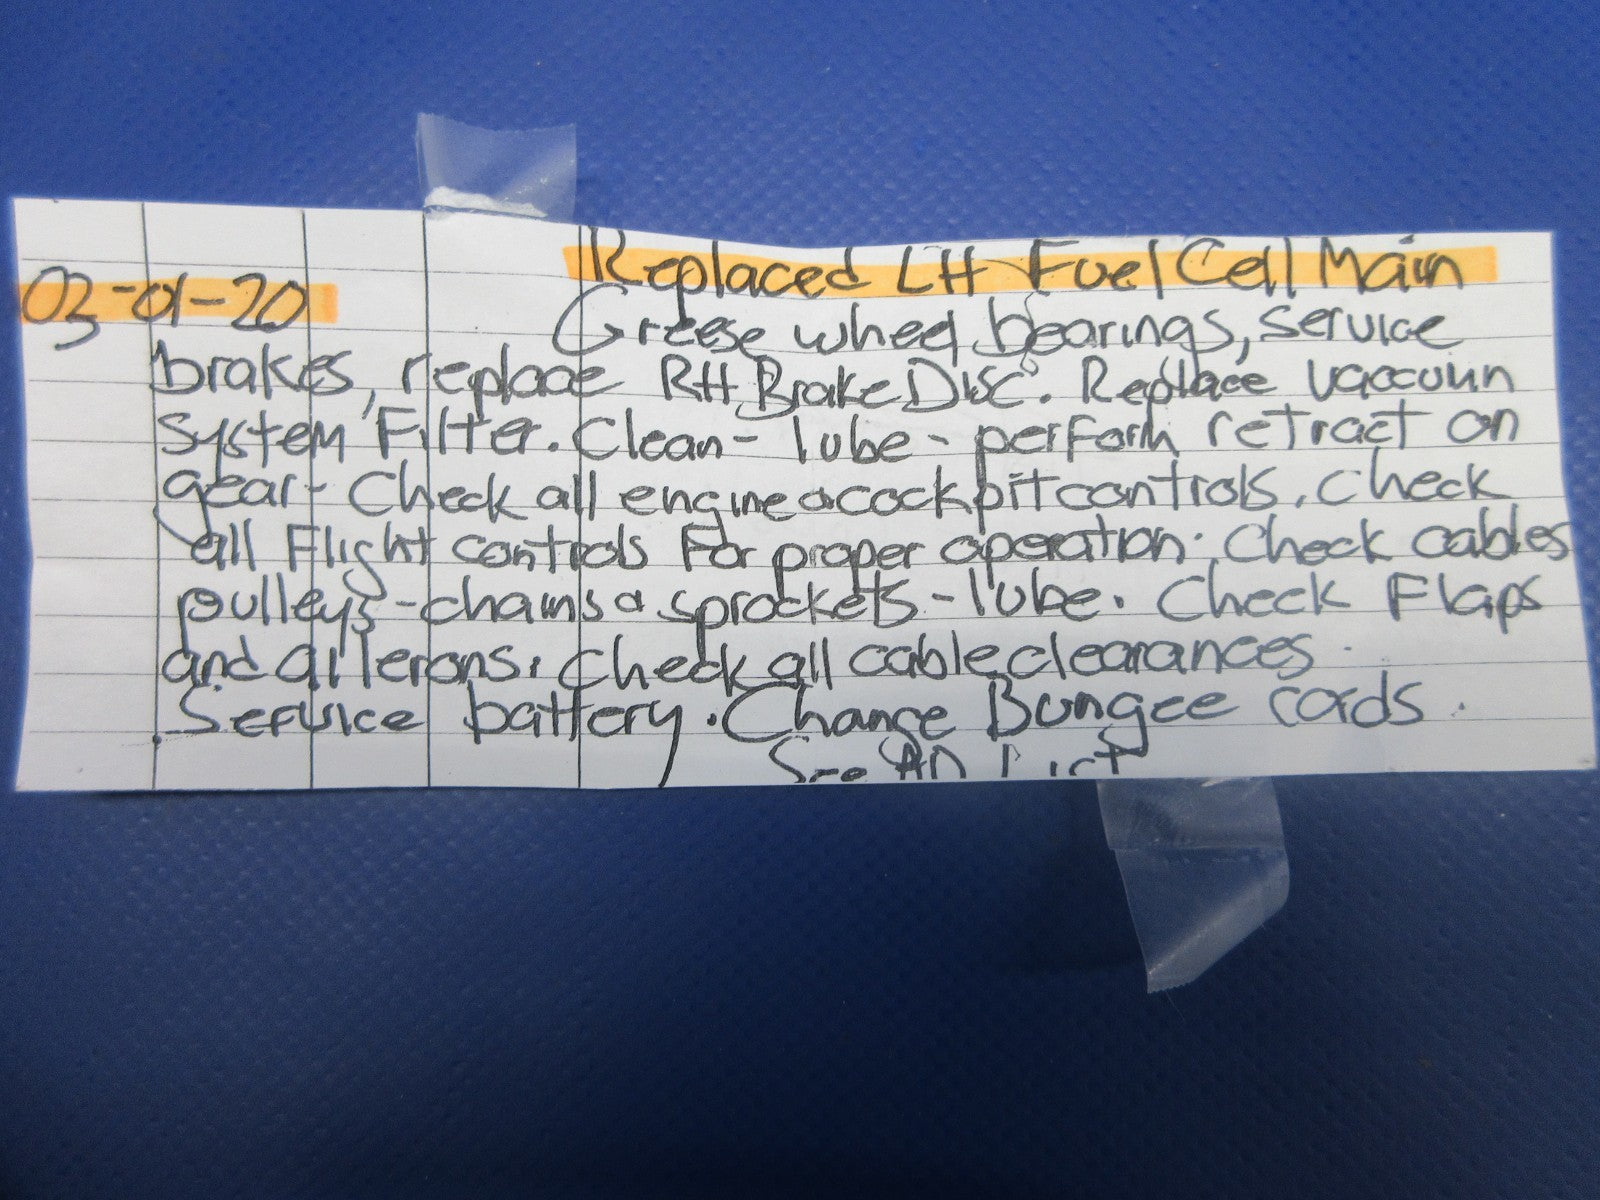 Replaced LH Fuel Cell Main
03-01-20
Greese wheel bearings, service
brakes, replace RH Brake Disc. Replace vaccuun
System Filter. Clean - lube - perform retract on
gear - Check all engine & cockpit controls. Check
all Flight controls For proper operation. Check cables
pulleys - chains & sprockets - lube. Check Flaps
and ailerons. Check all cable clearances.
Service battery. Change Bungee cords.
See AD List